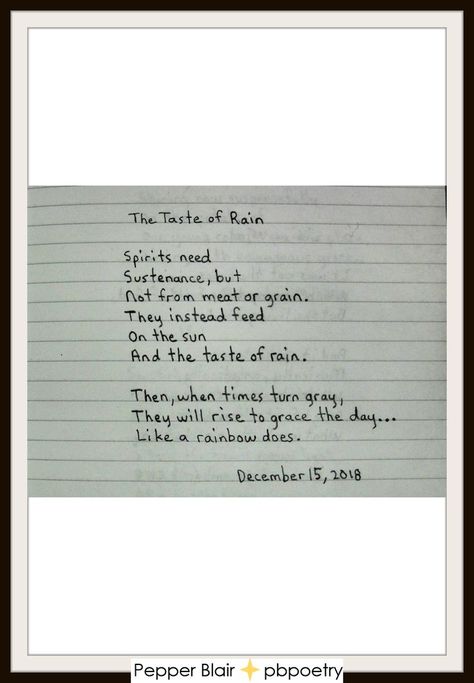 The Taste of Rain
Spirits need
Sustenance, but
Not from meat or grain.
They instead feed
On the sun
And the taste of rain.
Then, when times turn gray,
They will rise to grace the day...
Like a rainbow does.
December 15, 2018
Pepper Blair ✨ pbpoetry